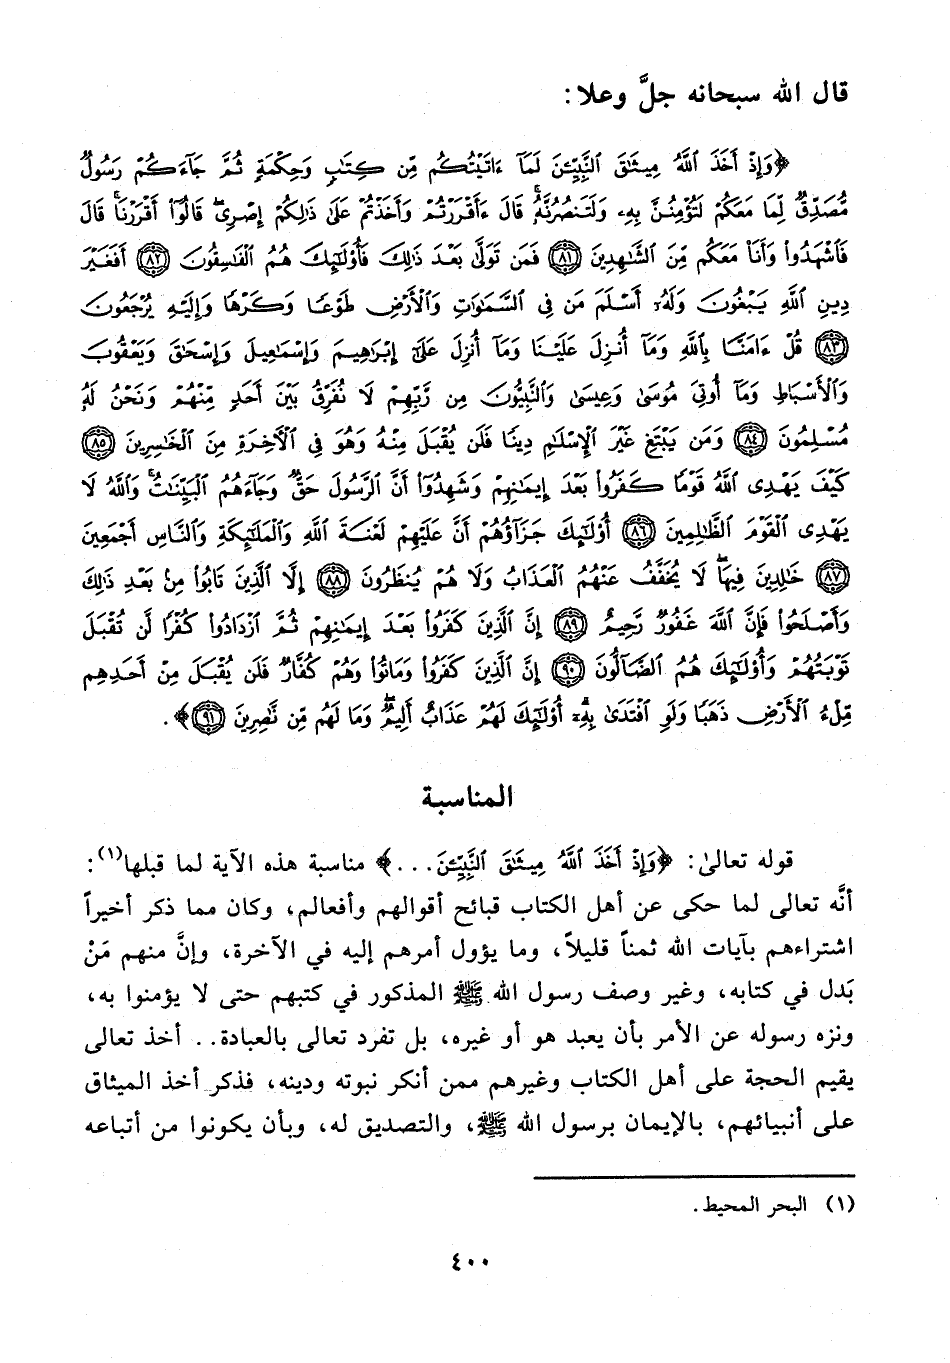 قال الله سبحانه جلَّ وعلا:
﴿وَإِذْ أَخَذَ ٱللَّهُ مِيثَٰقَ ٱلنَّبِيِّـۧنَ لَمَآ ءَاتَيْتُكُم مِّن كِتَٰبٍ وَحِكْمَةٍ ثُمَّ جَآءَكُمْ رَسُولٌ
مُّصَدِّقٌ لِّمَا مَعَكُمْ لَتُؤْمِنُنَّ بِهِۦ وَلَتَنصُرُنَّهُۥ قَالَ ءَأَقْرَرْتُمْ وَأَخَذْتُمْ عَلَىٰ ذَٰلِكُمْ إِصْرِى قَالُوٓا۟ أَقْرَرْنَا قَالَ
فَٱشْهَدُوا۟ وَأَنَا۠ مَعَكُم مِّنَ ٱلشَّٰهِدِينَ ﴿٨١﴾ فَمَن تَوَلَّىٰ بَعْدَ ذَٰلِكَ فَأُو۟لَٰٓئِكَ هُمُ ٱلْفَٰسِقُونَ ﴿٨٢﴾ أَفَغَيْرَ
دِينِ ٱللَّهِ يَبْغُونَ وَلَهُۥٓ أَسْلَمَ مَن فِى ٱلسَّمَٰوَٰتِ وَٱلْأَرْضِ طَوْعًا وَكَرْهًا وَإِلَيْهِ يُرْجَعُونَ
﴿٨٣﴾ قُلْ ءَامَنَّا بِٱللَّهِ وَمَآ أُنزِلَ عَلَيْنَا وَمَآ أُنزِلَ عَلَىٰٓ إِبْرَٰهِيمَ وَإِسْمَٰعِيلَ وَإِسْحَٰقَ وَيَعْقُوبَ
وَٱلْأَسْبَاطِ وَمَآ أُوتِىَ مُوسَىٰ وَعِيسَىٰ وَٱلنَّبِيُّونَ مِن رَّبِّهِمْ لَا نُفَرِّقُ بَيْنَ أَحَدٍ مِّنْهُمْ وَنَحْنُ لَهُۥ
مُسْلِمُونَ ﴿٨٤﴾ وَمَن يَبْتَغِ غَيْرَ ٱلْإِسْلَٰمِ دِينًا فَلَن يُقْبَلَ مِنْهُ وَهُوَ فِى ٱلْءَاخِرَةِ مِنَ ٱلْخَٰسِرِينَ ﴿٨٥﴾
كَيْفَ يَهْدِى ٱللَّهُ قَوْمًا كَفَرُوا۟ بَعْدَ إِيمَٰنِهِمْ وَشَهِدُوٓا۟ أَنَّ ٱلرَّسُولَ حَقٌّ وَجَآءَهُمُ ٱلْبَيِّنَٰتُ وَٱللَّهُ لَا
يَهْدِى ٱلْقَوْمَ ٱلظَّٰلِمِينَ ﴿٨٦﴾ أُو۟لَٰٓئِكَ جَزَآؤُهُمْ أَنَّ عَلَيْهِمْ لَعْنَةَ ٱللَّهِ وَٱلْمَلَٰٓئِكَةِ وَٱلنَّاسِ أَجْمَعِينَ
﴿٨٧﴾ خَٰلِدِينَ فِيهَا لَا يُخَفَّفُ عَنْهُمُ ٱلْعَذَابُ وَلَا هُمْ يُنظَرُونَ ﴿٨٨﴾ إِلَّا ٱلَّذِينَ تَابُوا۟ مِنۢ بَعْدِ ذَٰلِكَ
وَأَصْلَحُوا۟ فَإِنَّ ٱللَّهَ غَفُورٌ رَّحِيمٌ ﴿٨٩﴾ إِنَّ ٱلَّذِينَ كَفَرُوا۟ بَعْدَ إِيمَٰنِهِمْ ثُمَّ ٱزْدَادُوا۟ كُفْرًا لَّن تُقْبَلَ
تَوْبَتُهُمْ وَأُو۟لَٰٓئِكَ هُمُ ٱلضَّآلُّونَ ﴿٩٠﴾ إِنَّ ٱلَّذِينَ كَفَرُوا۟ وَمَاتُوا۟ وَهُمْ كُفَّارٌ فَلَن يُقْبَلَ مِنْ أَحَدِهِم
مِّلْءُ ٱلْأَرْضِ ذَهَبًا وَلَوِ ٱفْتَدَىٰ بِهِۦٓ أُو۟لَٰٓئِكَ لَهُمْ عَذَابٌ أَلِيمٌ وَمَا لَهُم مِّن نَّٰصِرِينَ ﴿٩١﴾﴾.
المناسبة
قوله تعالىٰ: ﴿وَإِذْ أَخَذَ ٱللَّهُ مِيثَٰقَ ٱلنَّبِيِّـۧنَ...﴾ مناسبة هذه الآية لما قبلها(١):
أنَّه تعالى لما حكى عن أهل الكتاب قبائح أقوالهم وأفعالم، وكان مما ذكر أخيراً
اشتراءهم بآيات الله ثمناً قليلاً، وما يؤول أمرهم إليه في الآخرة، وإنَّ منهم مَنْ
بَدل في كتابه، وغير وصف رسول الله ﷺ المذكور في كتبهم حتى لا يؤمنوا به،
ونزه رسوله عن الأمر بأن يعبد هو أو غيره، بل تفرد تعالى بالعبادة.. أخذ تعالى
يقيم الحجة على أهل الكتاب وغيرهم ممن أنكر نبوته ودينه، فذكر أخذ الميثاق
على أنبيائهم، بالإيمان برسول الله ﷺ، والتصديق له، وبأن يكونوا من أتباعه
(١) البحر المحيط.
٤٠٠